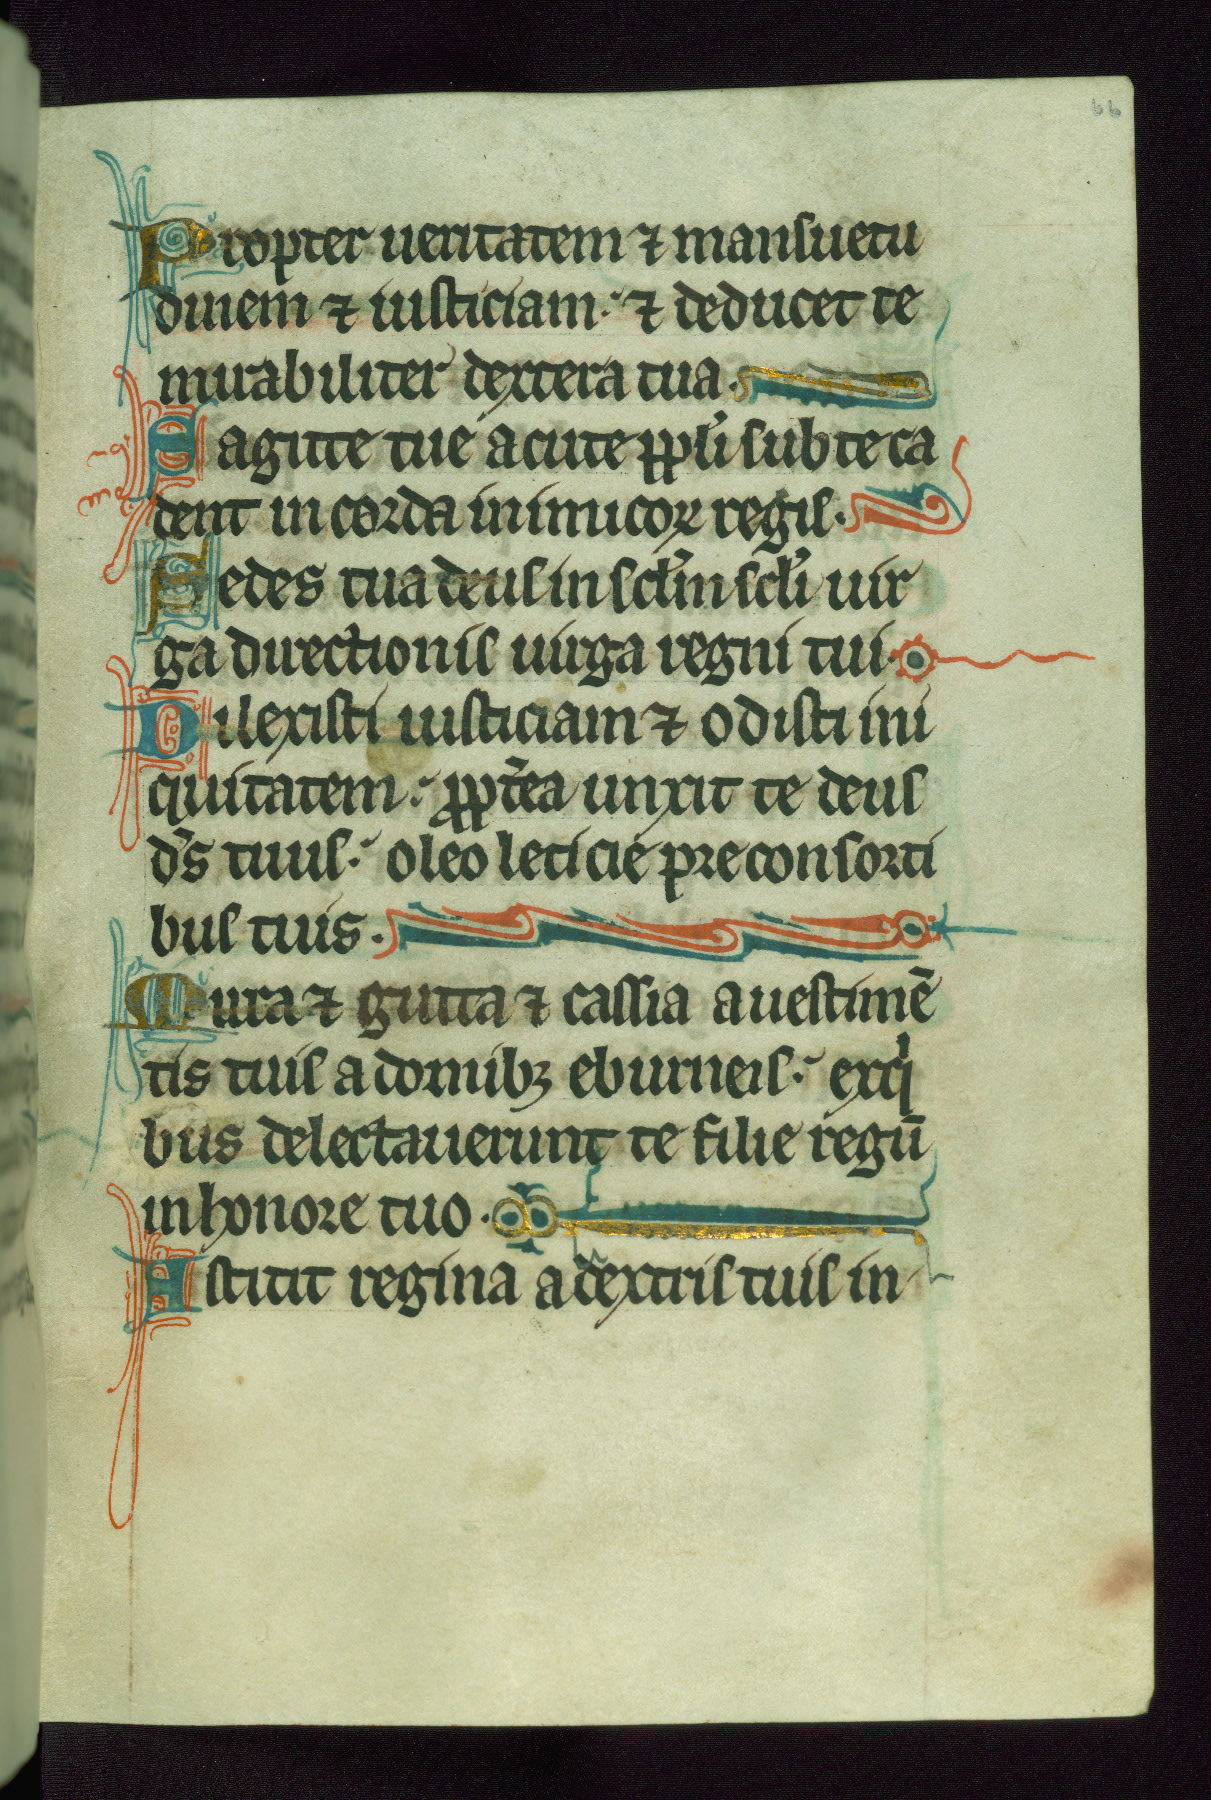 66
Propter ueritatem ⁊ mansuetu
dinem ⁊ iusticiam· ⁊ deducet te
mirabiliter dextera tua·
Sagitte tue acute ppl̃i sub te ca
dent in corda inimicoꝝ regis·
Sedes tua deus in scl̃m scl̃i uir
ga directionis uirga regni tui·
Dilexisti iusticiam ⁊ odisti ini
quitatem· ppt̃ea unxit te deus
ds̃ tuus· oleo leticie pre consorti
bus tuis·
Mirra ⁊ gutta ⁊ cassia a uestimẽ
tis tuis a domibꝫ eburneis· ex q̇
bus delectauerunt te filie regũ
in honore tuo·
Astitit regina a dextris tuis in